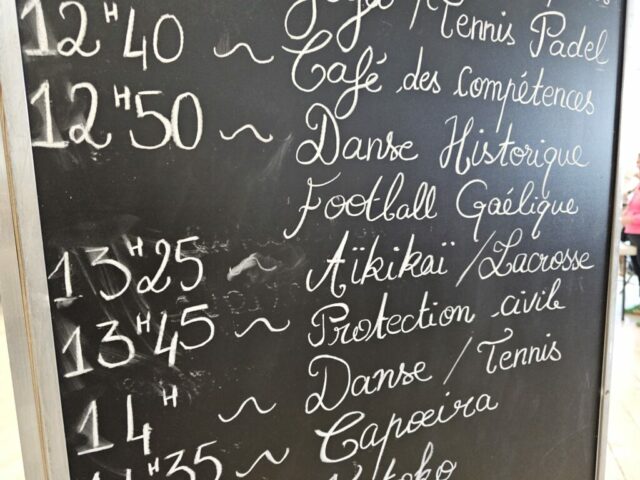 / Tennis Padel
12H40 ~ Café des compétences
12H50 ~ Danse Historique
Football Gaélique
13H25 ~ Aïkikaï / Lacrosse
13H45 ~ Protection civile
14H ~ Danse / Tennis
14H35 ~ Capoeira